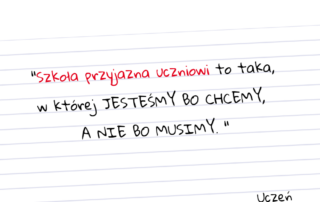 "Szkoła przyjazna uczniowi to taka,
w której JESTEŚMY BO CHCEMY,
A NIE BO MUSIMY. "
Uczeń